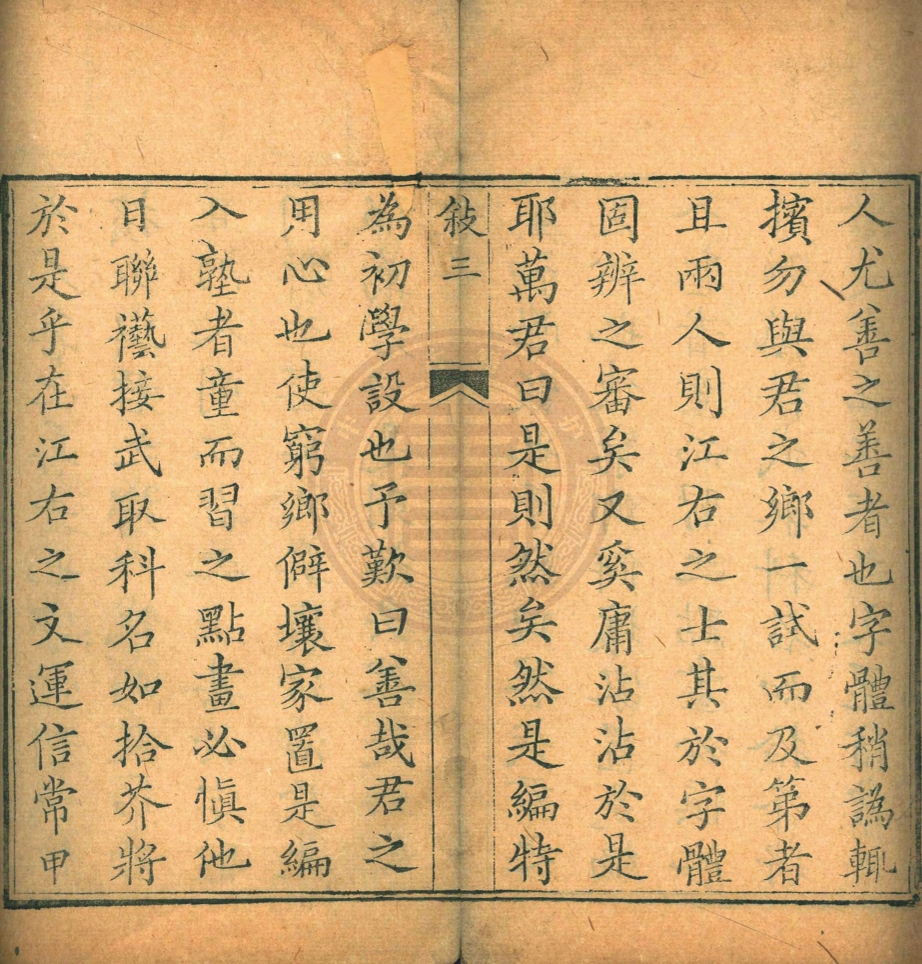 人尤善之善者也字體稍譌輒
擯勿與君之鄉一試而及第者
且兩人則江右之士其於字體
固辨之審矣又奚庸沾沾於是
耶萬君曰是則然矣然是編特
敍三
為初學設也予歎曰善哉君之
用心也使窮鄉僻壤家置是編
入塾者童而習之點畫必慎他
日聯襼接武取科名如拾芥將
於是乎在江右之文運信常甲